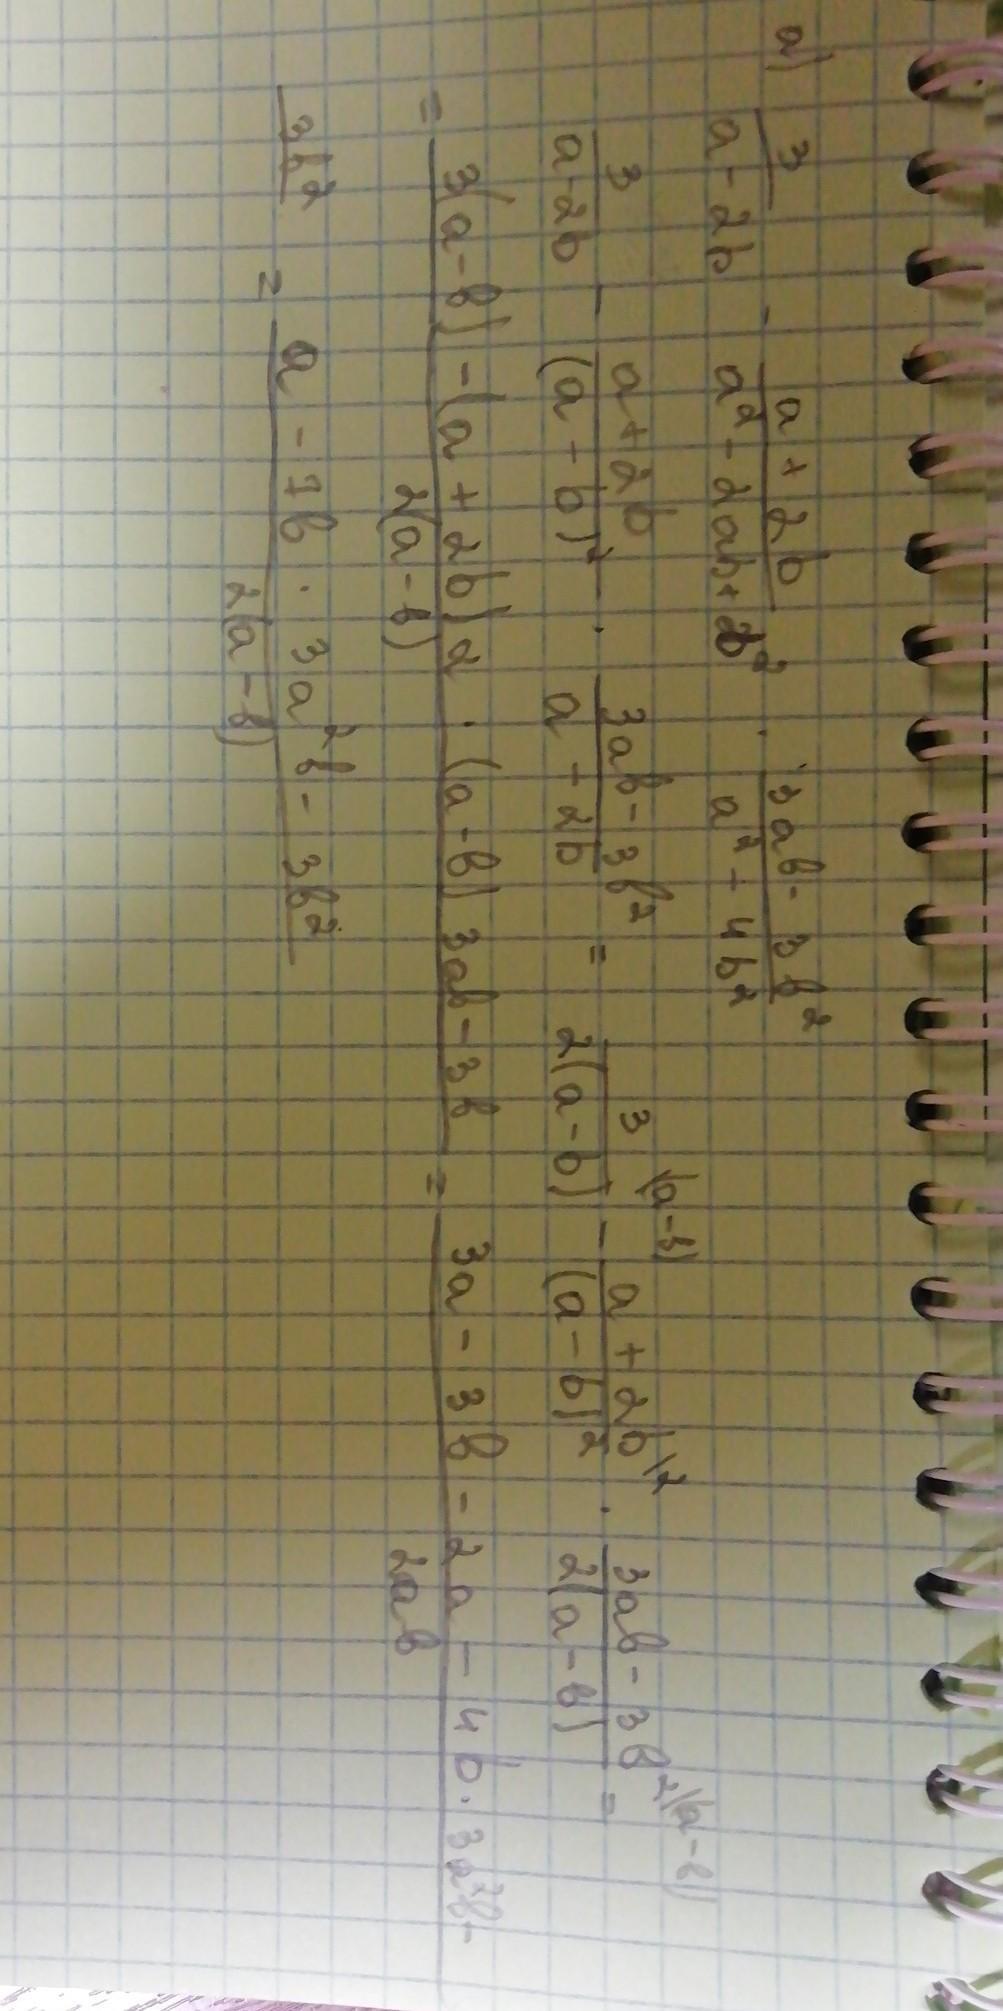 а) 3/(a - 2b) - (a + 2b)/(a² - 2ab + 2b²) · (3ab - 3b²)/(a² - 4b²)
3/(a - 2b) - (a + 2b)/(a - b)² · (3ab - 3b²)/(a - 2b) = 3/(2(a - b)) (a - b) - (a + 2b)/(a - b)² |2 · (3ab - 3b²)/(2(a - b)) (a - b) =
= (3(a - b) - (a + 2b)2 · (a - b) 3ab - 3b)/(2(a - b)) = (3a - 3b - 2a - 4b · 3a²b -)/(2ab)
3b² = (a - 7b · 3a²b - 3b²)/(2(a - b))